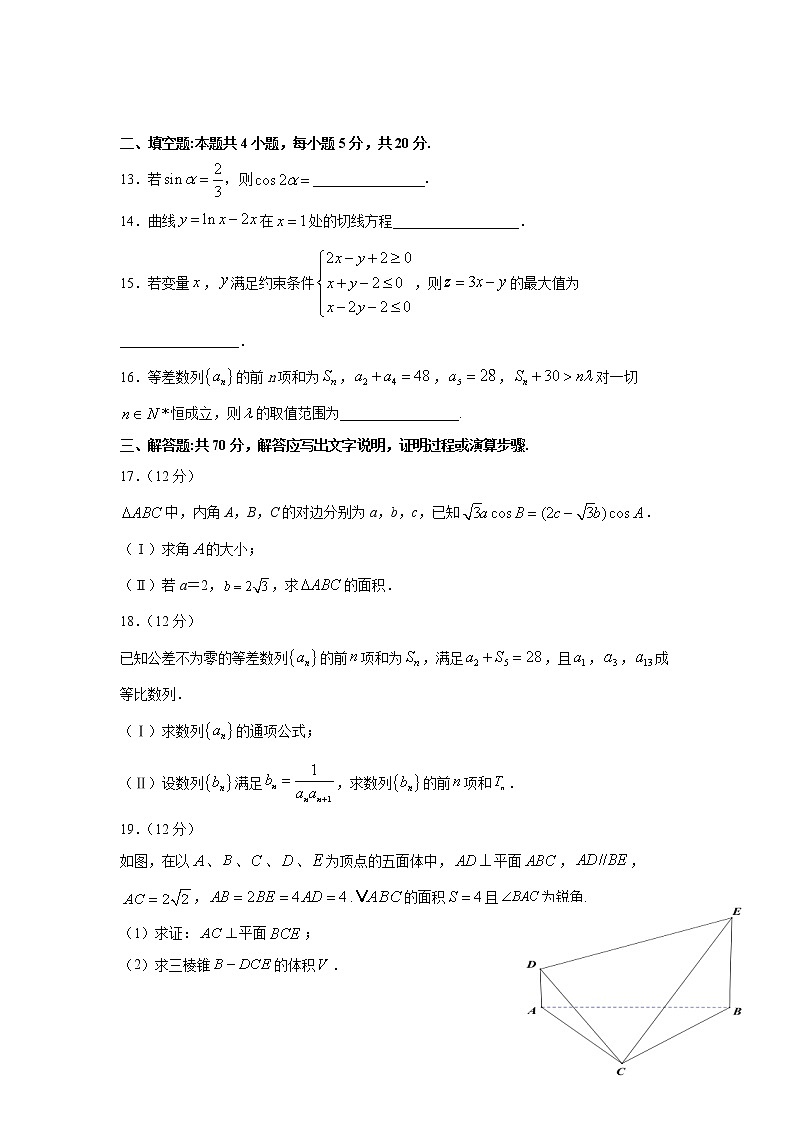 二、填空题:本题共4小题，每小题5分，共20分.
13．若 sin α = 2/3，则 cos 2α = ________________.
14．曲线 y = ln x − 2x 在 x = 1 处的切线方程__________________．
15．若变量 x，y 满足约束条件 { 2x − y + 2 ≥ 0 ; x + y − 2 ≤ 0 ; x − 2y − 2 ≤ 0，则 z = 3x − y 的最大值为
_________________．
16．等差数列{aₙ}的前 n 项和为 Sₙ，a₂ + a₄ = 48，a₅ = 28，Sₙ + 30 > nλ 对一切
n ∈ N * 恒成立，则 λ 的取值范围为_________________.
三、解答题:共70分，解答应写出文字说明，证明过程或演算步骤.
17.（12分）
ΔABC 中，内角 A，B，C 的对边分别为 a，b，c，已知 √3a cos B = (2c − √3b) cos A．
（Ⅰ）求角 A 的大小；
（Ⅱ）若 a＝2，b = 2√3，求 ΔABC 的面积．
18.（12分）
已知公差不为零的等差数列{aₙ}的前 n 项和为 Sₙ，满足 a₂ + S₅ = 28，且 a₁，a₃，a₁₃ 成
等比数列．
（Ⅰ）求数列{aₙ}的通项公式；
（Ⅱ）设数列{bₙ}满足 bₙ = 1/(aₙaₙ₊₁)，求数列{bₙ}的前 n 项和 Tₙ．
19.（12分）
如图，在以 A、B、C、D、E 为顶点的五面体中，AD ⊥ 平面 ABC，AD//BE，
AC = 2√2，AB = 2BE = 4AD = 4．VABC 的面积 S = 4 且 ∠BAC 为锐角．
（1）求证：AC ⊥ 平面 BCE；
（2）求三棱锥 B − DCE 的体积 V．
E
D
A
B
C